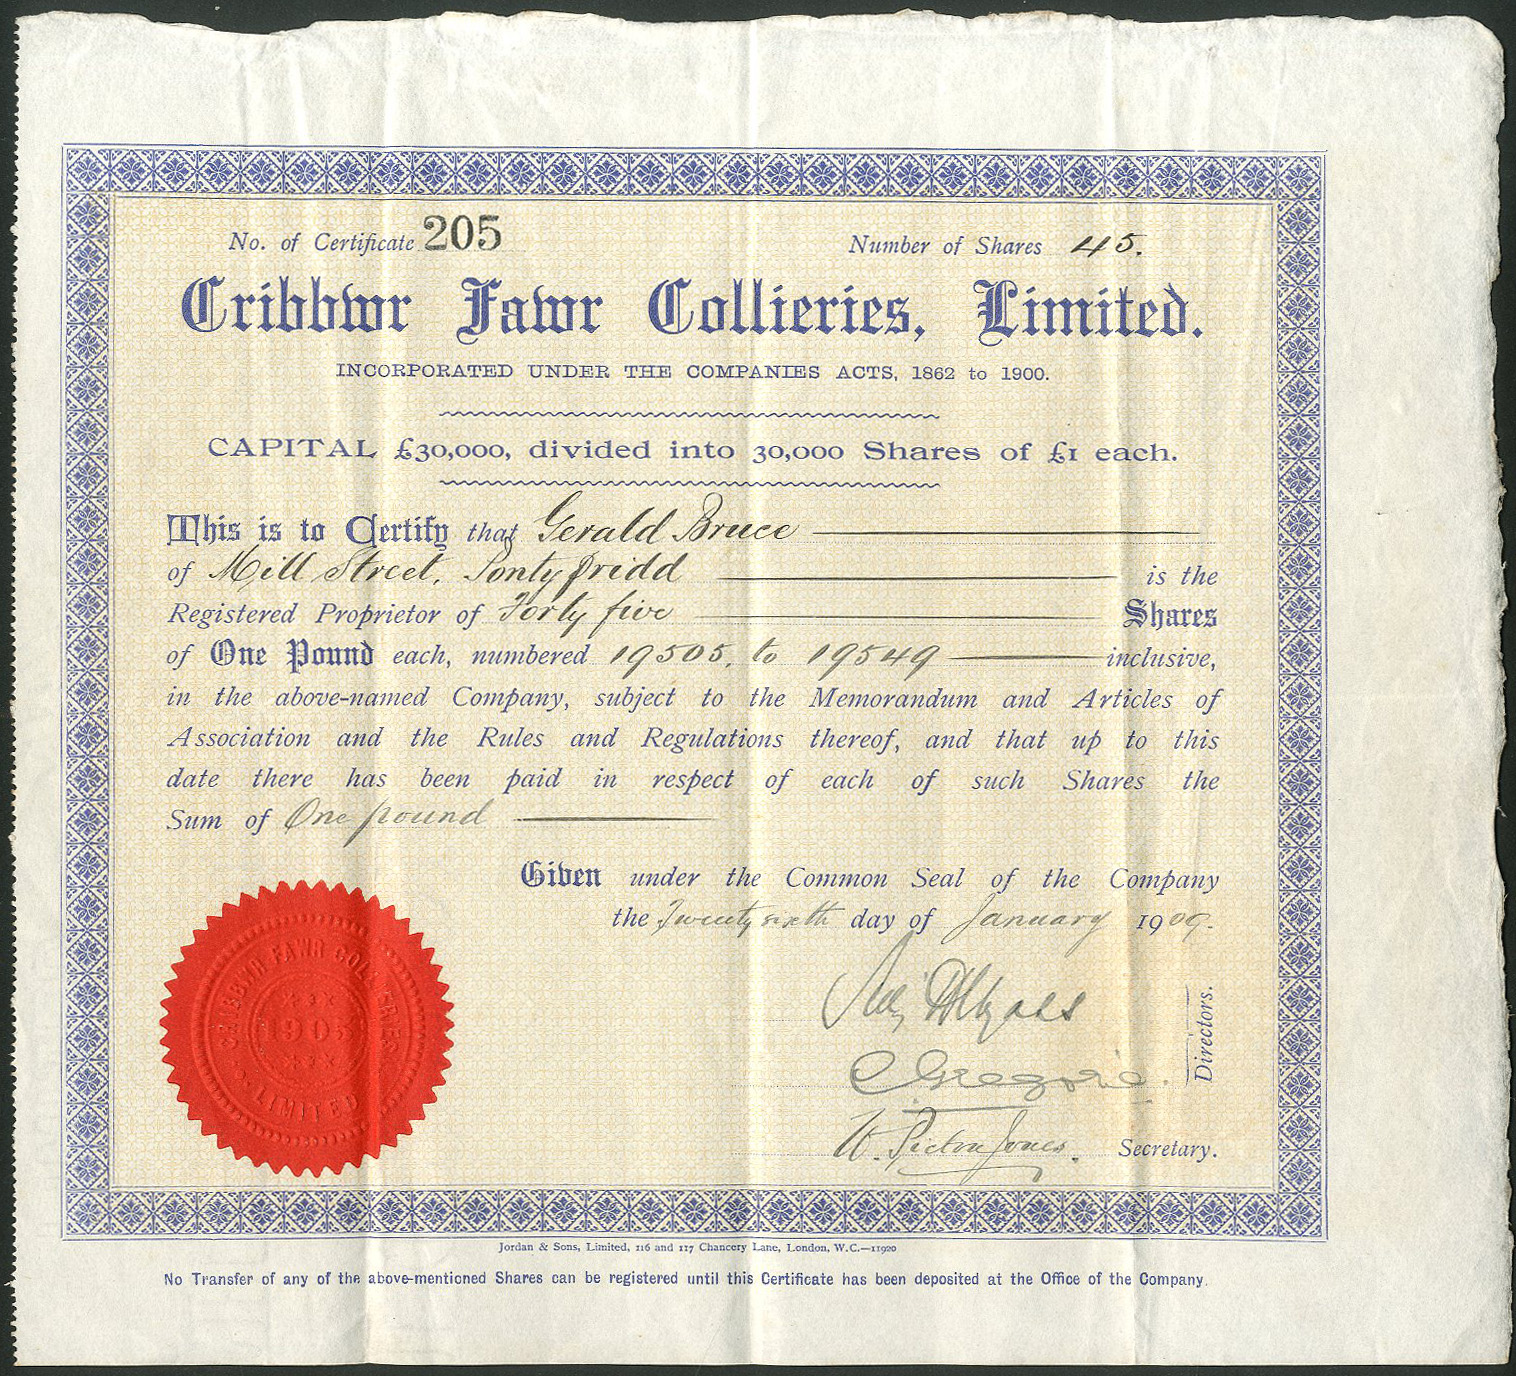 No. of Certificate 205
Number of Shares 45.
Cribbwr Fawr Collieries, Limited.
INCORPORATED UNDER THE COMPANIES ACTS, 1862 to 1900.
CAPITAL £30,000, divided into 30,000 Shares of £1 each.
This is to Certify that Gerald Bruce
of Mill Street, Pontypridd is the
Registered Proprietor of Forty five Shares
of One Pound each, numbered 19505, to 19549 inclusive,
in the above-named Company, subject to the Memorandum and Articles of
Association and the Rules and Regulations thereof, and that up to this
date there has been paid in respect of each of such Shares the
Sum of One pound
Given under the Common Seal of the Company
the Twenty sixth day of January 1909.
CRIBBWR FAWR COLLIERIES
1905
LIMITED
C Gregorie.
Directors.
W. Picton Jones. Secretary.
Jordan & Sons, Limited, 116 and 117 Chancery Lane, London, W.C.—11920
No Transfer of any of the above-mentioned Shares can be registered until this Certificate has been deposited at the Office of the Company.